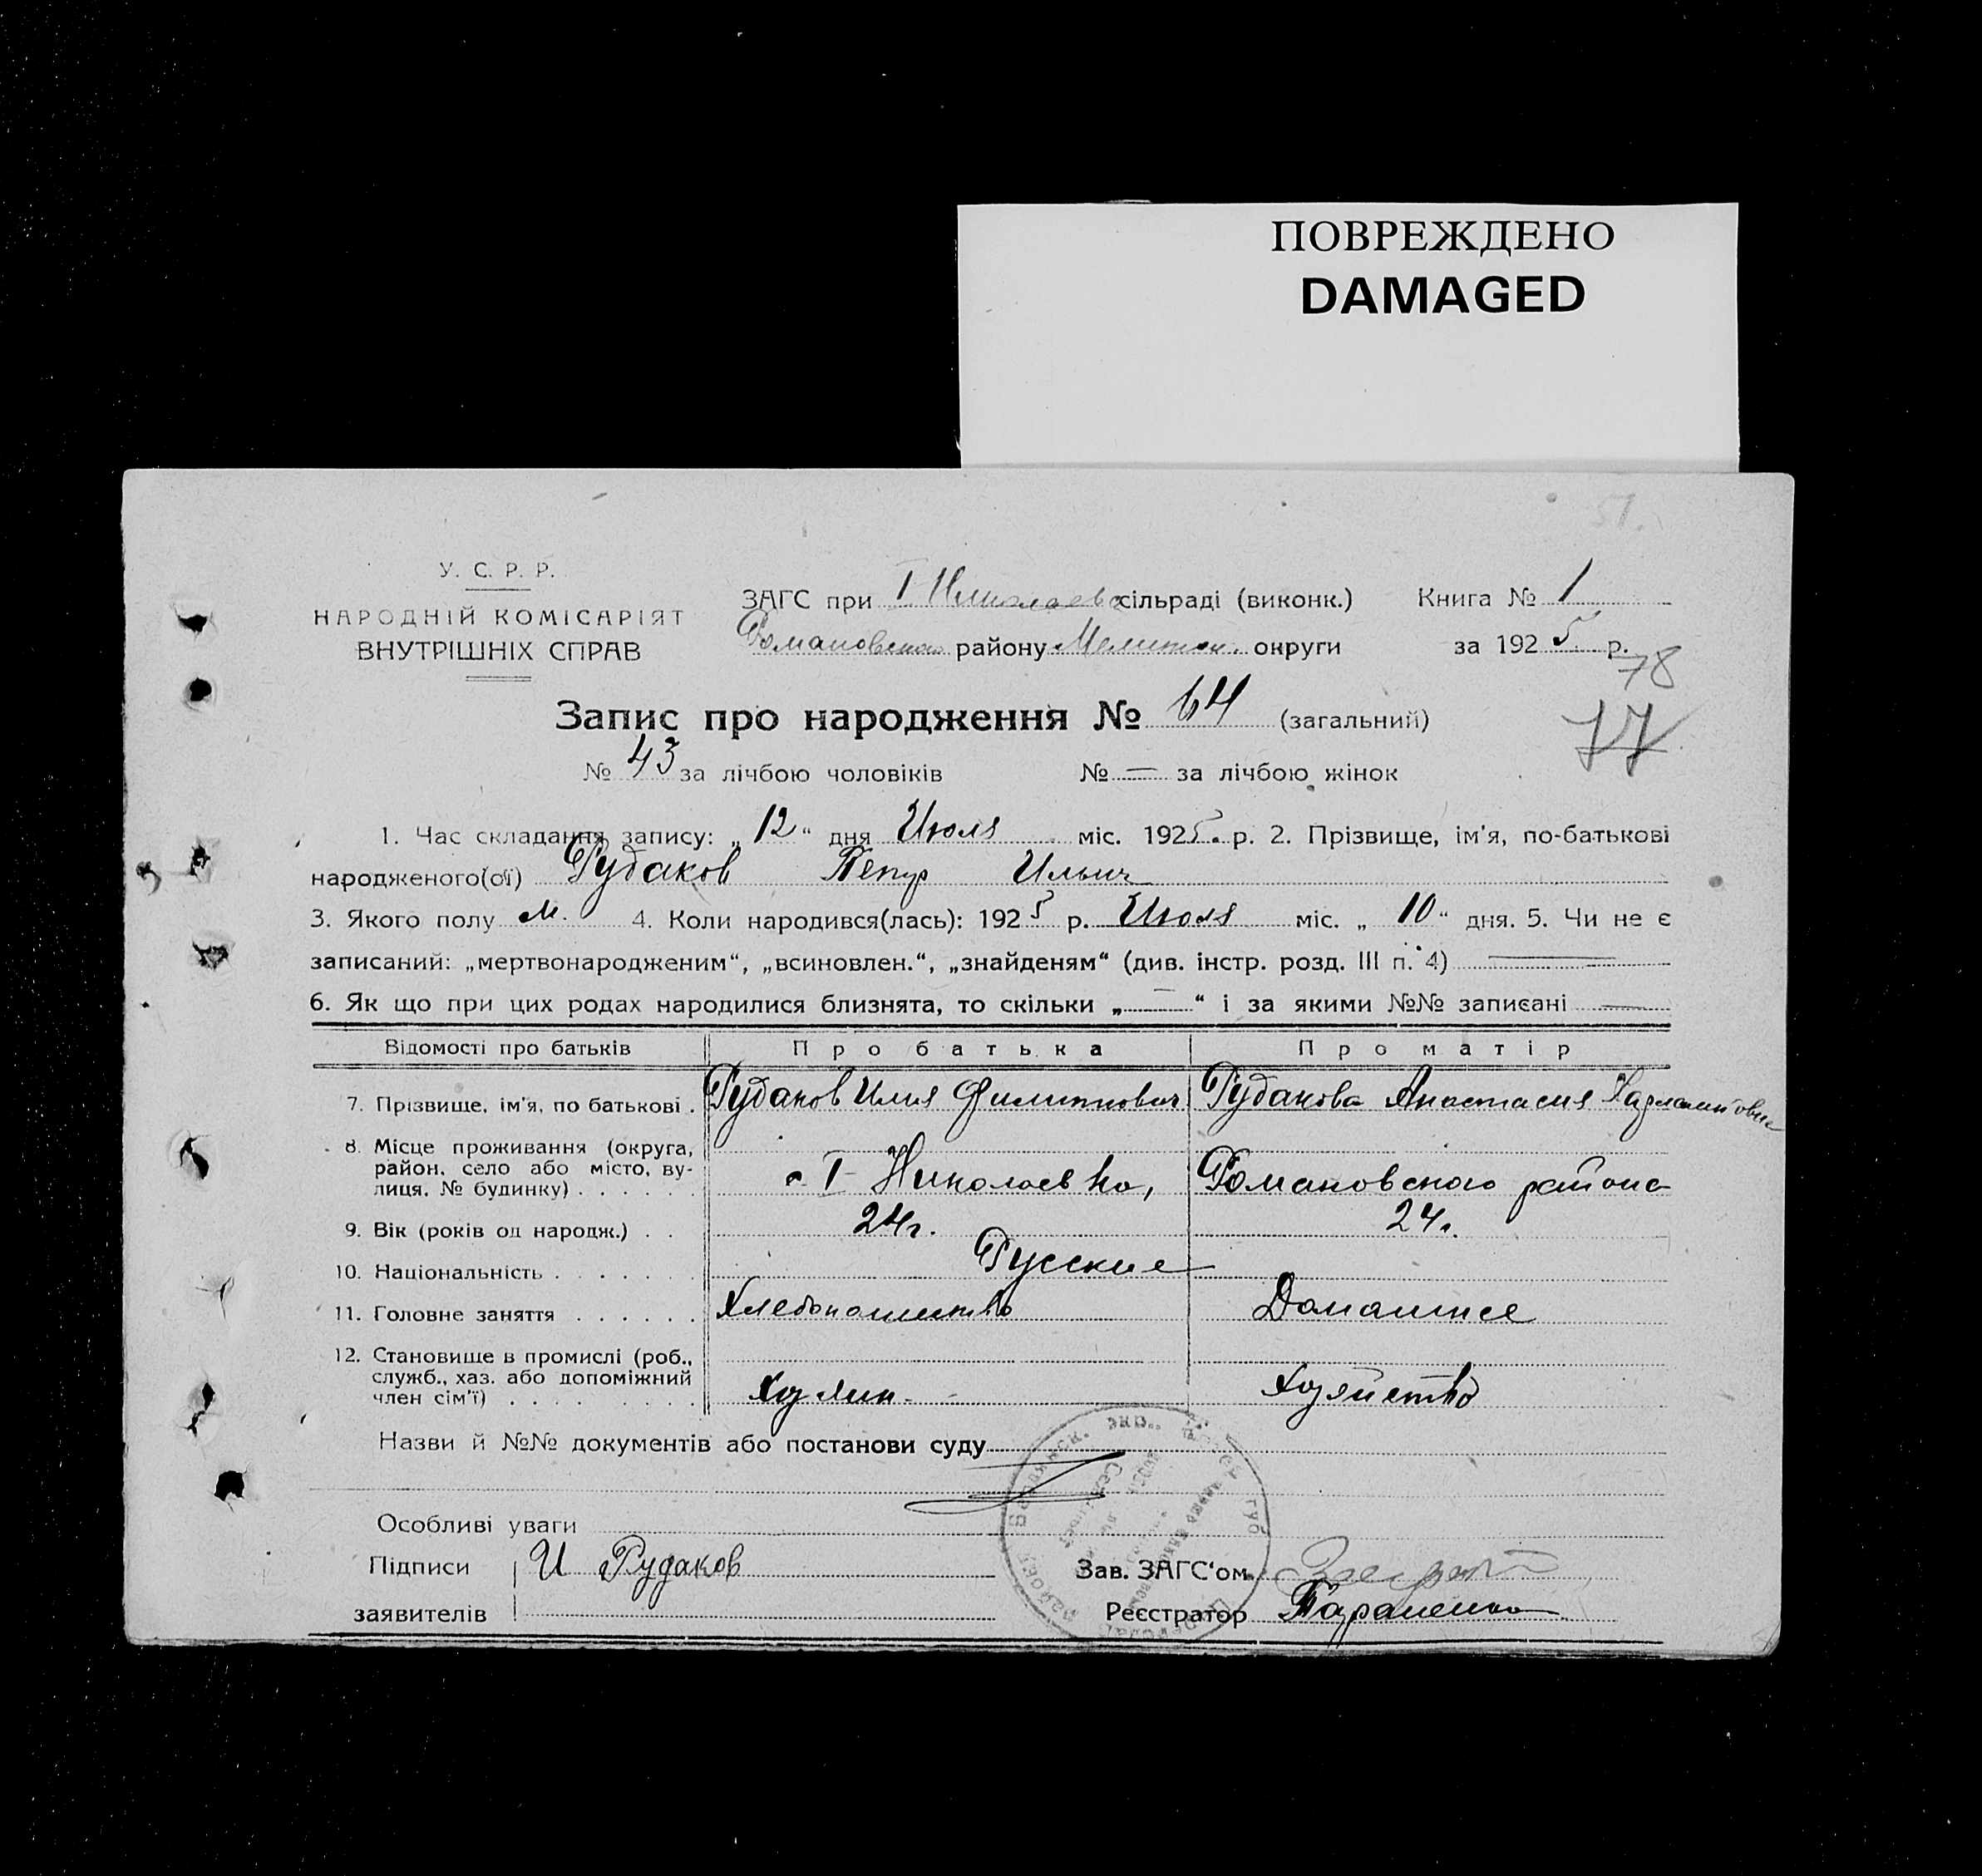 ПОВРЕЖДЕНО
DAMAGED
51.
У. С. Р. Р.
НАРОДНІЙ КОМІСАРІЯТ
ВНУТРІШНІХ СПРАВ
ЗАГС при I Николаевс сільраді (виконк.) Книга № 1
Романовского району Мелитоп. округи за 1925 р.
78
Запис про народження № 64 (загальний)
77
№ 43 за лічбою чоловіків № — за лічбою жінок
1. Час складання запису: „ 12 “ дня Июля міс. 1925. р. 2. Прізвище, ім'я, по-батькові
народженого(ої) Рудаков Петр Ильич
3. Якого полу м. 4. Коли народився(лась): 1925 р. Июля міс. „ 10 “ дня. 5. Чи не є
записаний: „мертвонародженим“, „всиновлен.“, „знайденям“ (див. інстр. розд. III п. 4) —
6. Як що при цих родах народилися близнята, то скільки „ — “ і за якими №№ записані —
Відомості про батьків Про батька Про матір
7. Прізвище, ім'я, по батькові . Рудаков Илия Филиппович Рудакова Анастасия Харламповна
8. Місце проживання (округа,
район, село або місто, ву-
лиця, № будинку) . . . . . . с I-Николаевка, Романовского района
9. Вік (років од народж.) . . 24г. 24.
10. Національність . . . . . . . Русские
11. Головне заняття . . . . . . Хлебопашество Домашнее
12. Становище в промислі (роб.,
служб., хаз. або допоміжний
член сім'ї) . . . . . . . . Хозяин. - Хозяйство
Назви й №№ документів або постанови суду
Особливі уваги
Підписи И Рудаков Зав. ЗАГС'ом
заявителів Реєстратор Тараненко